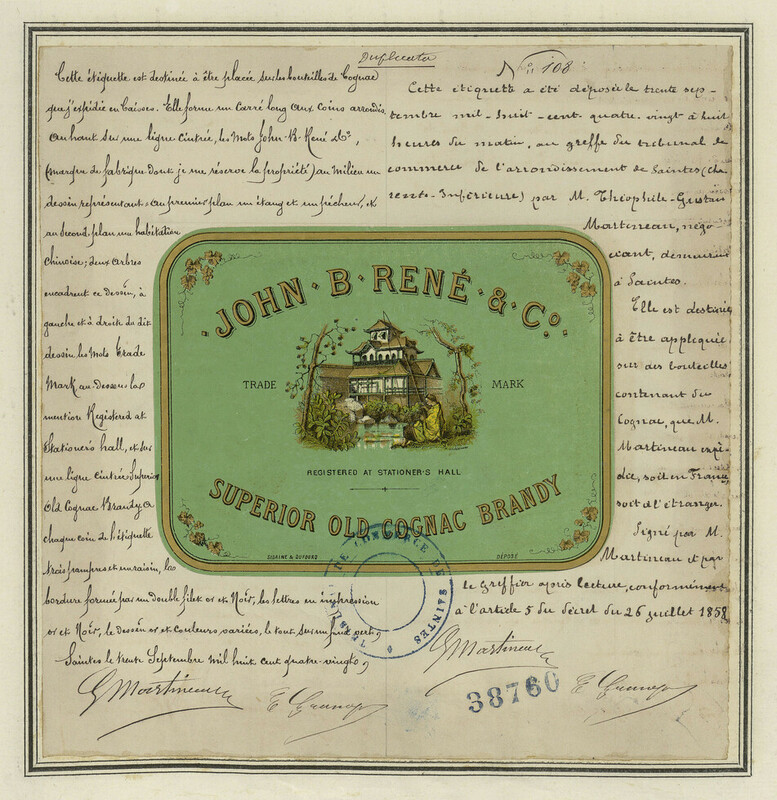 Duplicata
Cette étiquette est destinée à être placée sur les bouteilles de Cognac
que j'expédie en Caisses. Elle forme un carré long aux coins arrondis.
Au haut sur une ligne cintrée, les mots John-B-René & Co,
(marque de fabrique dont je me réserve la propriété) au milieu un
dessin représentant: au premier plan un étang et un pêcheur, et
au second plan une habitation
chinoise; deux arbres
encadrent ce dessin, à
gauche et à droite du dit
dessin les mots Trade
Mark au-dessous la
mention Registered at
Stationer's hall, et sur
une ligne cintrée Superior
Old Cognac Brandy. A
chaque coin de l'étiquette
trois pampres et un raisin, la
bordure formée par un double filet or et Noir, les lettres en impression
or et Noir, le dessin or et couleurs variées, le tout sur un fond vert,
Saintes le trente Septembre mil huit cent quatre-vingt,
G Martineau
No 108
Cette étiquette a été déposée le trente sep-
tembre mil-huit-cent-quatre-vingt à huit
heures du matin, au greffe du tribunal de
commerce de l'arrondissement de Saintes (Cha
rente-Inférieure) par M. Théophile-Gustave
Martineau, négo-
ciant, demeurant
à Saintes.
Elle est destinée
à être appliquée
sur des bouteilles
contenant du
Cognac, que M.
Martineau expé-
die, soit en France
soit à l'étranger.
Signé par M.
Martineau et par
le Greffier après lecture, conformément
à l'article 5 du décret du 26 juillet 1858
G Martineau
38760
JOHN · B · RENÉ · & · Co.
TRADE MARK
REGISTERED AT STATIONER'S HALL
SUPERIOR OLD COGNAC BRANDY
DÉPOSÉ
COMMERCE DE SAINTES